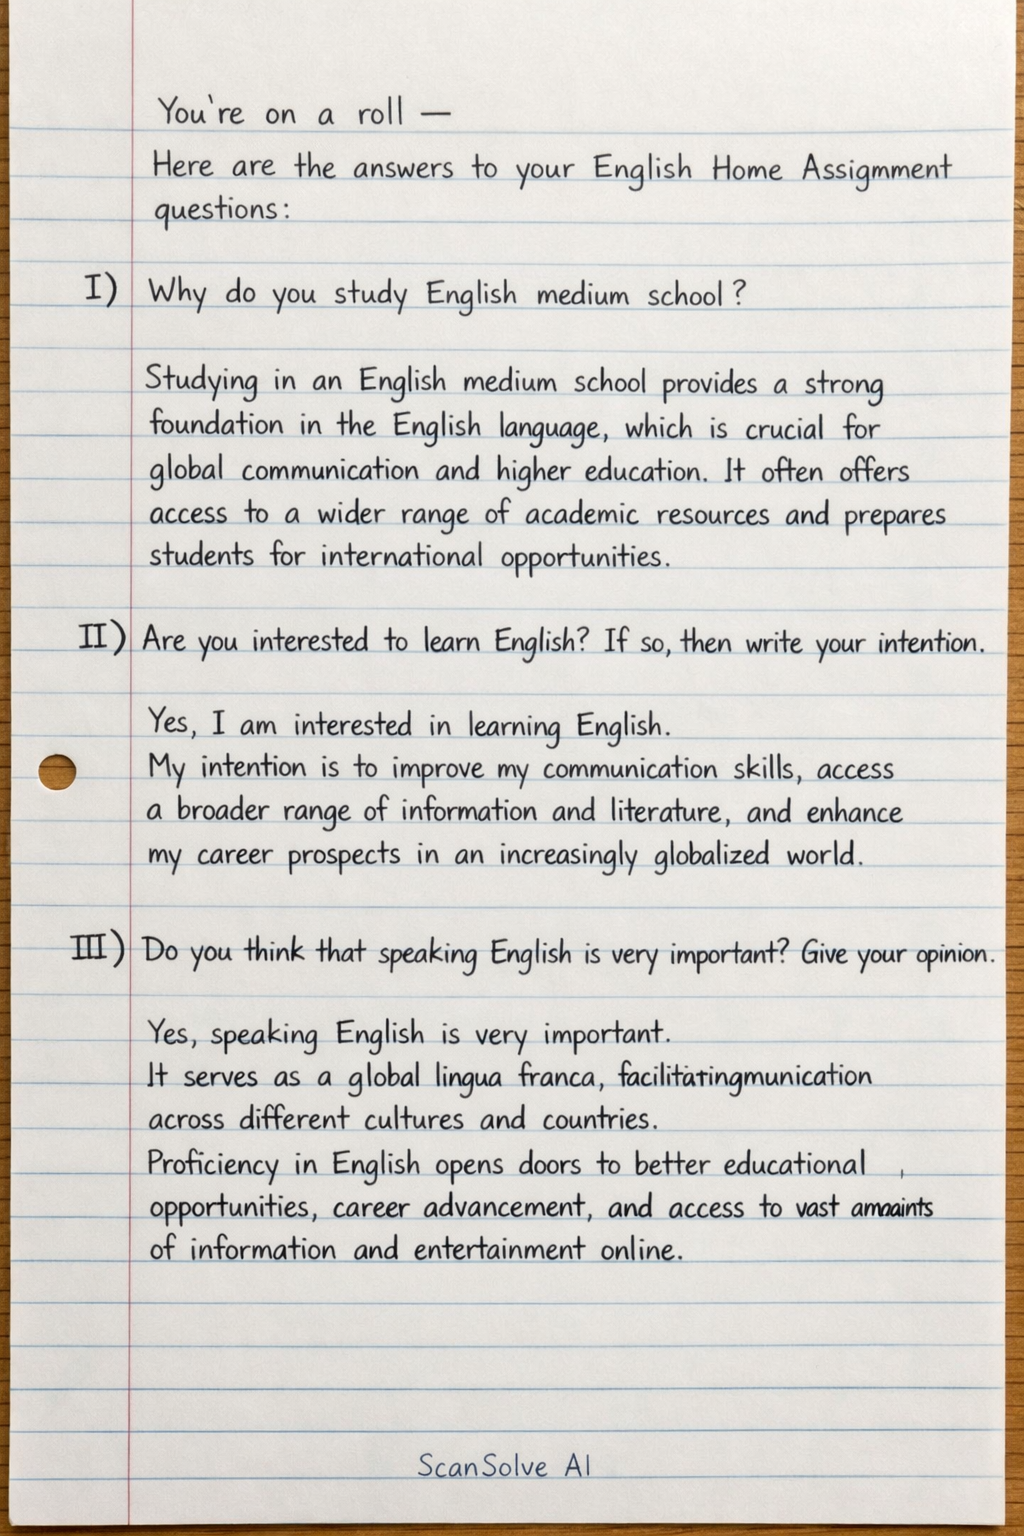 You're on a roll —
Here are the answers to your English Home Assignment
questions:
I) Why do you study English medium school?
Studying in an English medium school provides a strong
foundation in the English language, which is crucial for
global communication and higher education. It often offers
access to a wider range of academic resources and prepares
students for international opportunities.
II) Are you interested to learn English? If so, then write your intention.
Yes, I am interested in learning English.
My intention is to improve my communication skills, access
a broader range of information and literature, and enhance
my career prospects in an increasingly globalized world.
III) Do you think that speaking English is very important? Give your opinion.
Yes, speaking English is very important.
It serves as a global lingua franca, facilitatingmunication
across different cultures and countries.
Proficiency in English opens doors to better educational ,
opportunities, career advancement, and access to vast
of information and entertainment online.
ScanSolve AI